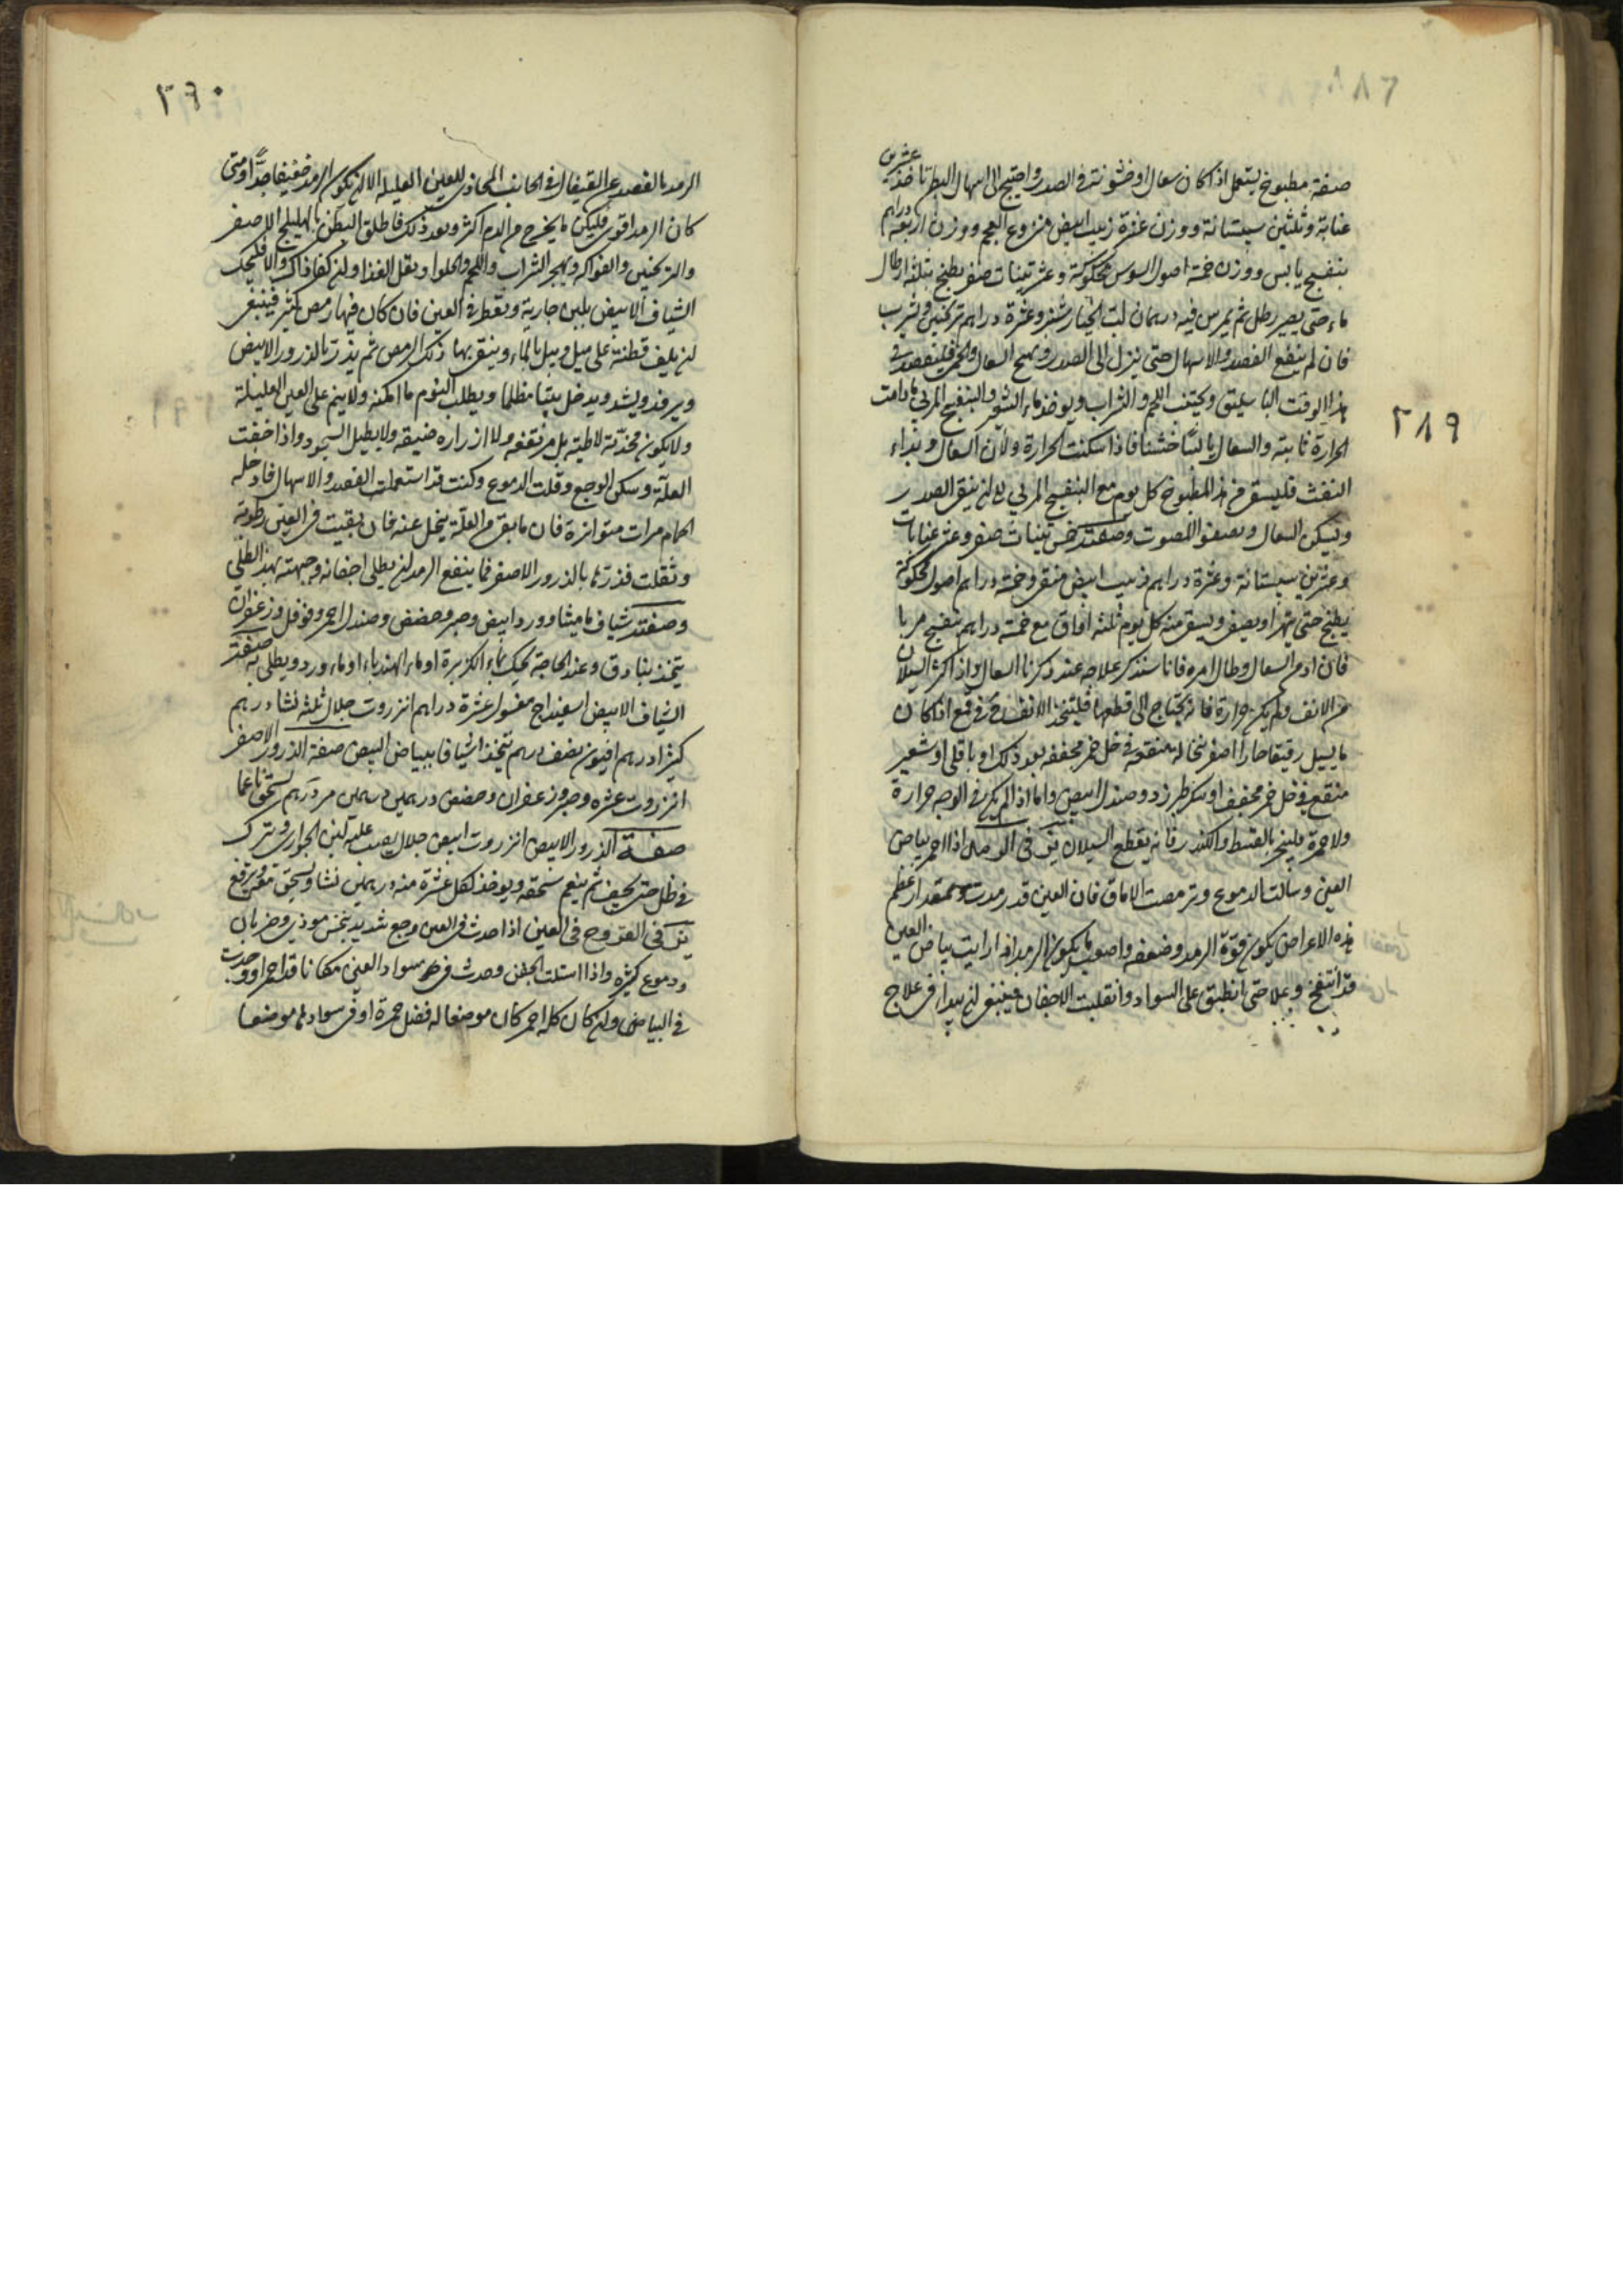 ٢٨٩
صفة مطبوخ يستعمل اذا كان سعال او خشونة في الصدر واحتيج الى اسهال البطن تاخذ عشرين
عنابة وثلثين سبستانة ووزن عشرة زبيب ابيض منزوع العجم ووزن اربعة دراهم
بنفسج يابس ووزن خمسة اصول السوس محكوكة وعشر تينات صفر يطبخ بثلثة ارطال
ماء حتى يصير رطل ثم يمرس فيه درهمان لب الخيار شنبر وعشرة دراهم ترنجبين ويشرب
فان لم ينفع الفصد والاسهال حتى ينزل الى الصدر ويهيج السعال والحمى فليفصد في
هذا الوقت الباسليق ويجتنب اللحم والشراب ويوخذ ماء الشعير والبنفسج المربى ما دامت
الحرارة ثابتة والسعال يابسًا خشنا فاذا سكنت الحرارة ولان السعال وبداء
النفث فليسق من هذا المطبوخ كل يوم مع البنفسج المربى الى ان ينقى الصدر
ويسكن السعال ويصفو الصوت وصفته خمس تينات صفر وعشر عنابات
وعشرين سبستانة وعشرة دراهم زبيب ابيض منقى وخمسة دراهم اصول محكوكة
يطبخ حتى يتهرا ويصفى ويسقى منه كل يوم ثلثة اواق مع خمسة دراهم بنفسج مربا
فان ادم السعال وطال امره فانا سنذكر علاجه عند ذكرنا السعال واذا كثر السيلان
من الانف ولم يكن حرارة فانه يحتاج الى قطعها فليتخذ للانف اذا كان
ما يسيل رقيقا حارا اصفر نخالة منقوعة في خل خمر مجففه بعد ذلك او باقلى او شعير
منقع في خل خمر مجفف او سكر طبرزد وصندل ابيض واما اذا لم يكن في الوجه حرارة
ولا حمرة فليبخر بالقسط والكندر فانه يقطع السيلان في الرمد اذا احمر بياض
العين وسالت الدموع وترمصت الاماق فان العين قد رمدت وبمقدار عظم
هذه الاعراض يكون قوة الرمد وضعفه واصعب ما يكون الرمد اذا رايت بياض العين
قد انتفخ وعلا حتى انطبق على السواد وانقلبت الاجفان فينبغي ان يبدا في علاج
٢٩٠
الرمد بالفصد من القيفال في الجانب المحاذى للعين العليلة الا ان يكون الرمد ضعيفا جدًّا ومتى
كان الرمد اقوى فليكن ما يخرج من الدم اكثر وبعد ذلك فاطلق البطن بالهليلج الاصفر
والترنجبين والفواكه ويهجر الشراب واللحم والحلوا ويقل الغذا وان كفا ذاك والا فليحك
الشياف الابيض بلبن جارية ويقطر في العين فان كان فيها رمص كثير فينبغي
ان يلف قطنة على ميل ويبل بالماء وينقى بها ذلك الرمص ثم يذر بالذرور الابيض
ويرفد ويشد ويدخل بيتا مظلما ويطلب النوم ما امكنه ولا ينم على العين العليلة
ولا يكون مخدته لاطية بل مرتفعه ولا ازراره ضيقه ولا يطيل السجود واذا خفت
العلة وسكن الوجع وقلت الدموع وكنت قد استعملت الفصد والاسهال فادخله
الحمام مرات متواترة فان ما بقى من العلة ينحل عنه فان بقيت في العين رطوبة
وثقلت فذرها بالذرور الاصفر فما ينفع الرمد ان يطلى اجفانه وجبهته بهذا الطلى
وصفته شياف ماميثا وورد ابيض وصبر وحضض وصندل احمر وفوفل وزعفران
يتخذ بنادق وعند الحاجة يحك بماء الكزبرة او ماء الهندباء او ماء ورد ويطلى به صفة
الشياف الابيض اسفيداج مغسول عشرة دراهم انزروت جلال ثلثه نشا درهم
كثيرا درهم افيون نصف درهم يتخذ اشيافا ببياض البيض صفة الذرور الاصفر
انزروت عشره وصبر وزعفران وحضض درهمين درهمين مر درهم يسحق ناعما
صفة الذرور الابيض انزروت ابيض جلال يصب عليه لبن الجوارى ويترك
في ظل حتى يجف ثم ينعم سحقه ويوخذ لكل عشرة منه درهمين نشا ويسحق معه ويرفع
في القروح في العين اذا حدث في العين وجع شديد بنخس موذي وضربان
ودموع كثيره واذا اسلت الجفن وحدث في سواد العين مكانا قد احمر او وجدت
في البياض وان كان كله احمر كان موضعا له فضل حمرة او في سوادها موضعا